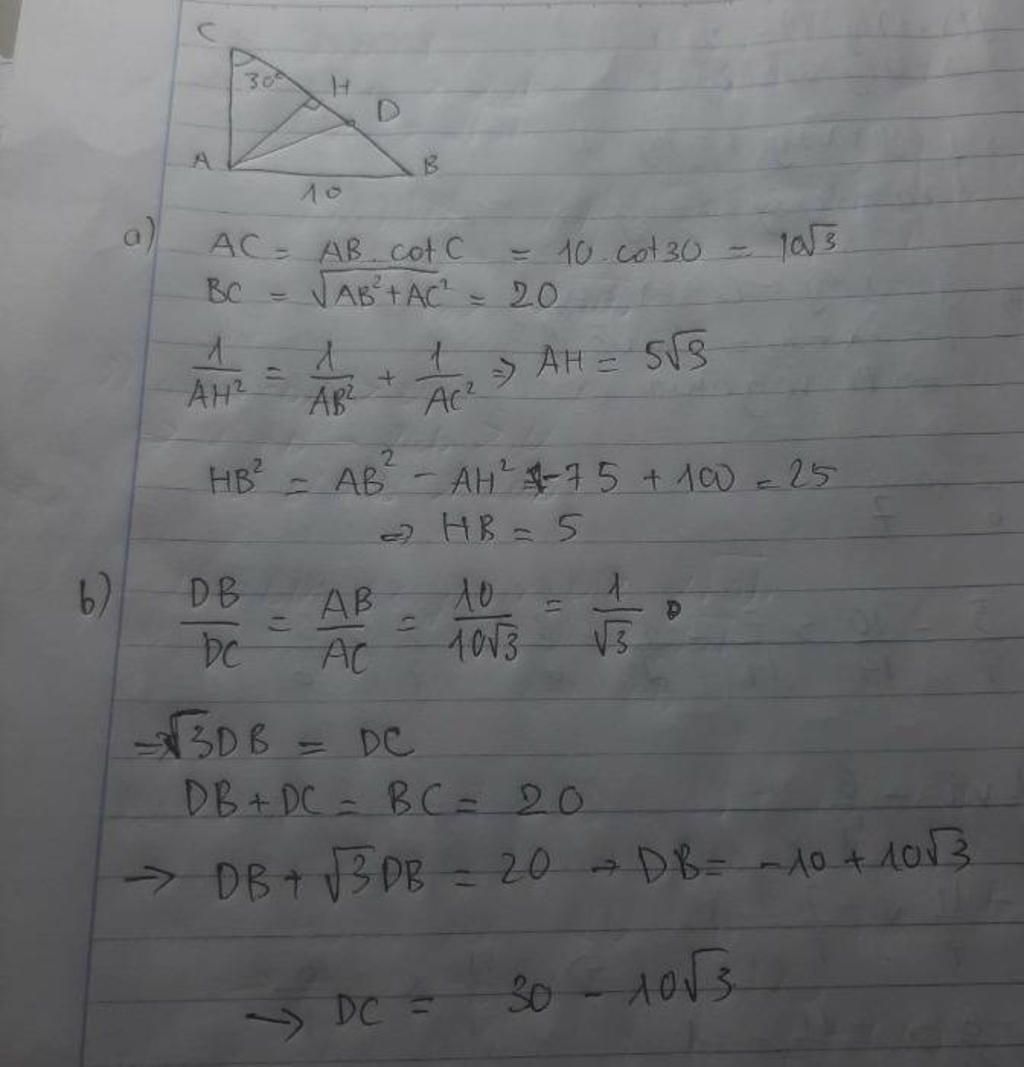 C
30°
H
D
A
B
10
a) AC = AB . cot C = 10 . cot 30 = 10√3
BC = √(AB² + AC²) = 20
1/AH² = 1/AB² + 1/AC² ⇒ AH = 5√3
HB² = AB² - AH² = -75 + 100 = 25
⇒ HB = 5
b) DB/DC = AB/AC = 10/10√3 = 1/√3
⇒ √3DB = DC
DB + DC = BC = 20
→ DB + √3DB = 20 → DB = -10 + 10√3
→ DC = 30 - 10√3